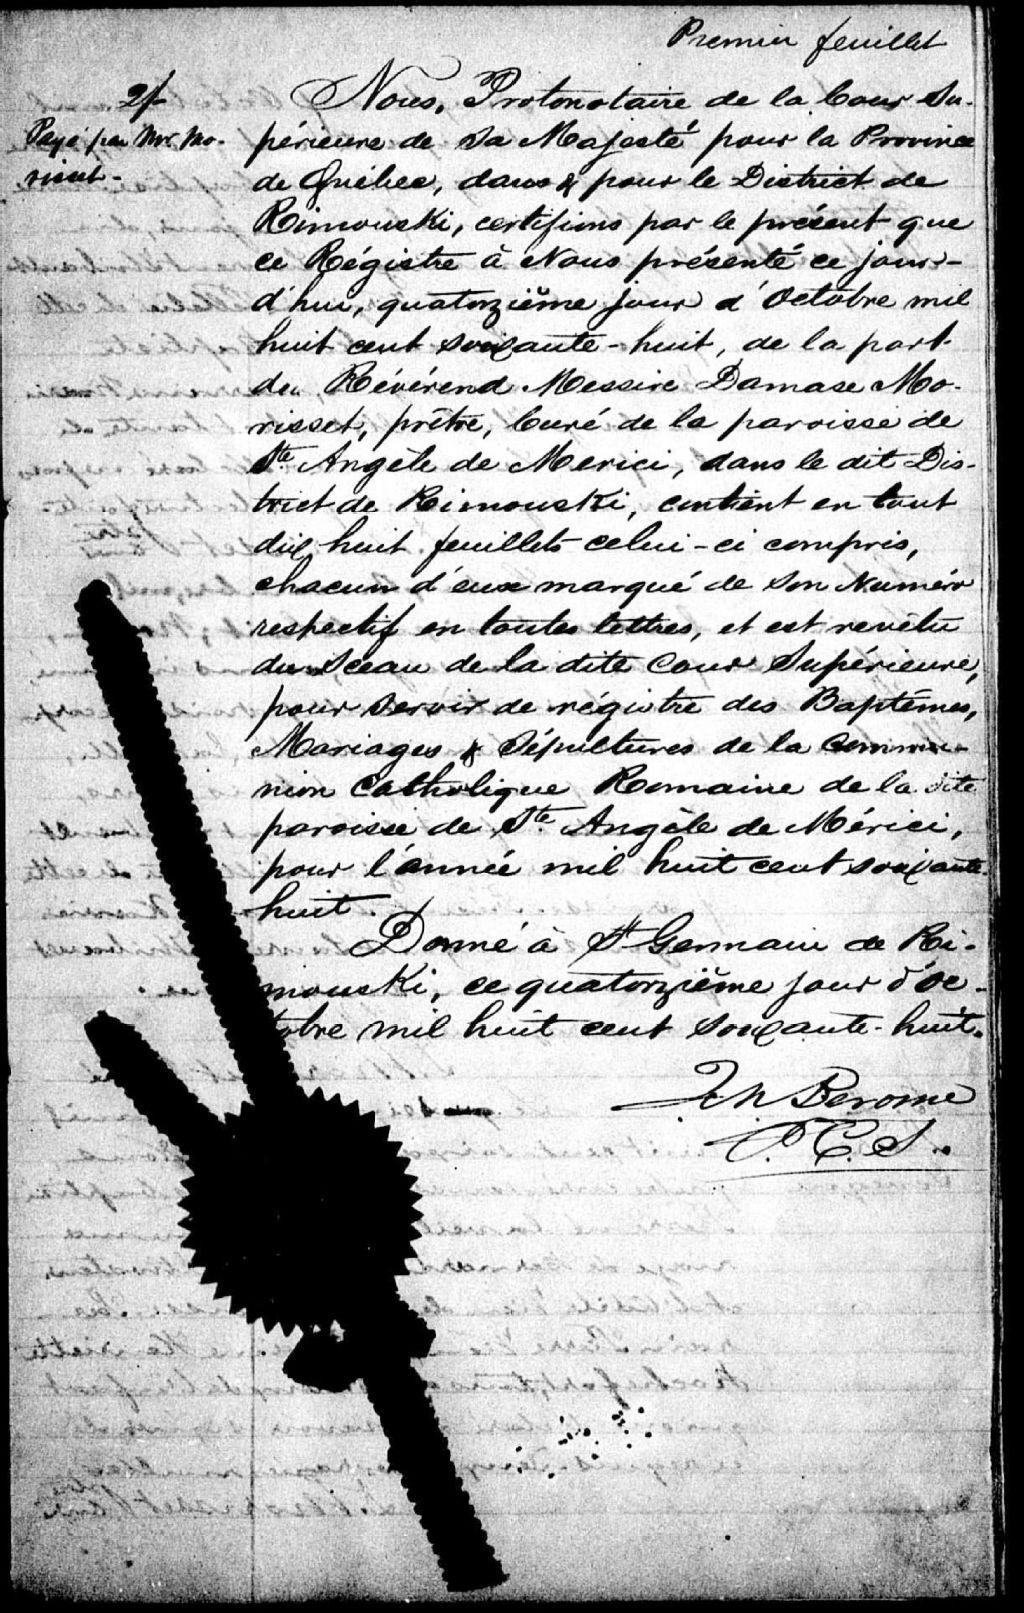 Premier feuillet
2/-
Payé par Mr. Mo-
risset -
Nous, Protonotaire de la Cour Su-
périeure de Sa Majesté pour la Province
de Québec, dans & pour le District de
Rimouski, certifions par le présent que
ce Régistre à Nous présenté ce jour-
d'hui, quatorzième jour d'Octobre mil
huit cent soixante-huit, de la part
du Révérend Messire Damase Mo-
risset, prêtre, Curé de la paroisse de
Ste Angèle de Merici, dans le dit Dis-
trict de Rimouski, contient en tout
dix huit feuillets celui-ci compris,
chacun d'eux marqué de son Numéro
respectif en toutes lettres, et est revêtu
du Sceau de la dite Cour Supérieure,
pour servir de régistre des Baptêmes,
Mariages & Sépultures de la Commu-
nion Catholique Romaine de la dite
paroisse de Ste Angèle de Mérici,
pour l'année mil huit cent soixante-
huit.
Donné à St Germain de Ri-
mouski, ce quatorzième jour d'Oc-
tobre mil huit cent soixante-huit.
P.C.S.